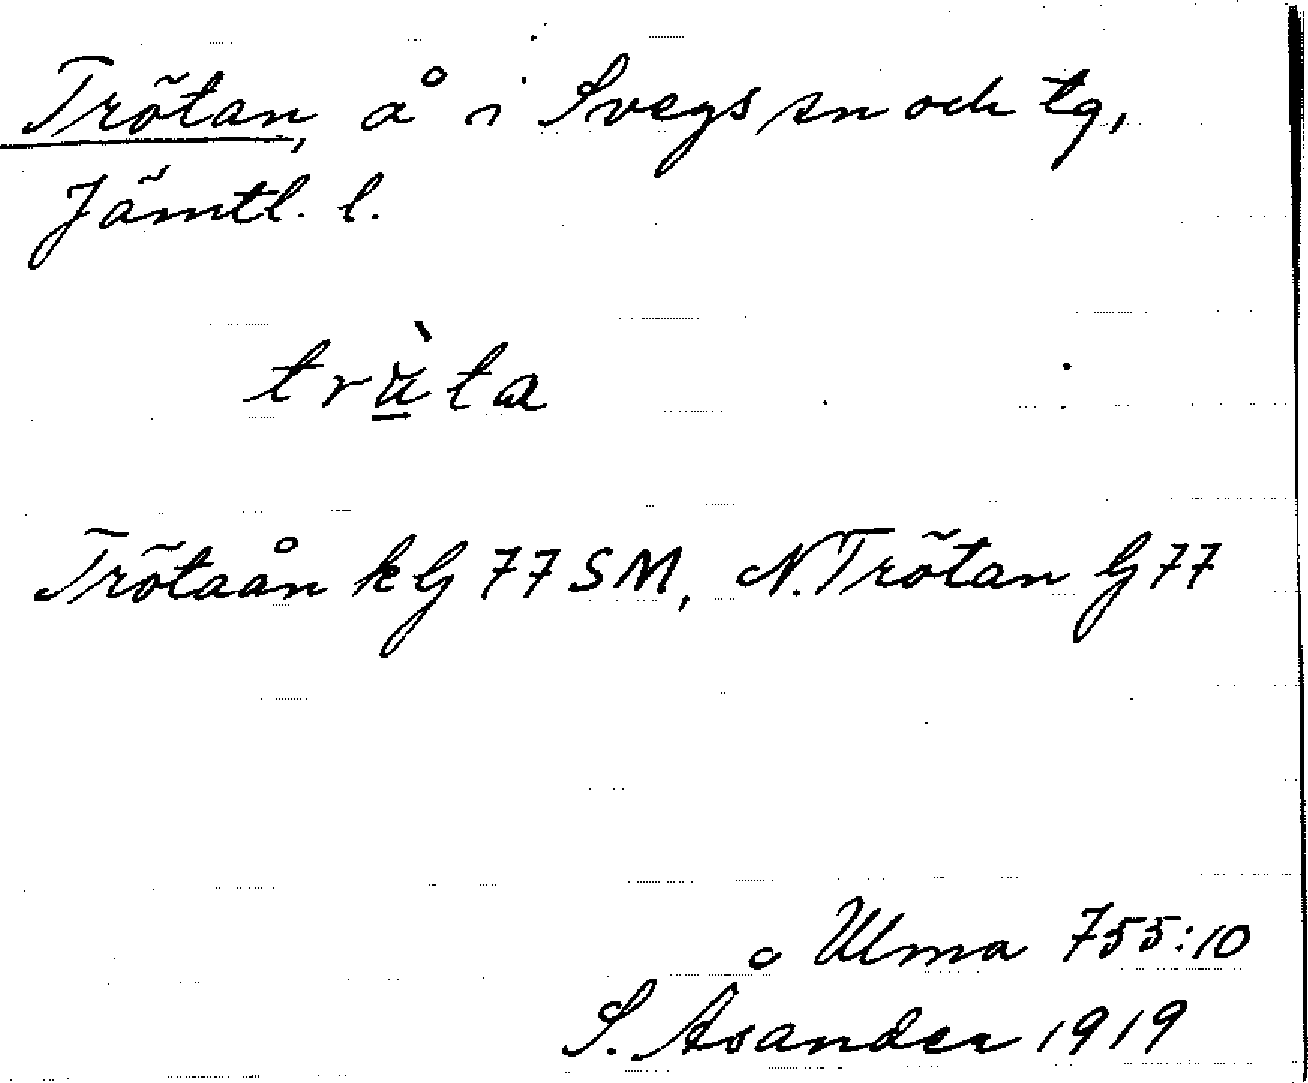 Trötan, å i Svegs sn och tg,
Jämtl. l.
trä̀ta
Trötaån kG 77 SM, N. Trötan G 77
Ulma 755:10
S. Åsander 1919